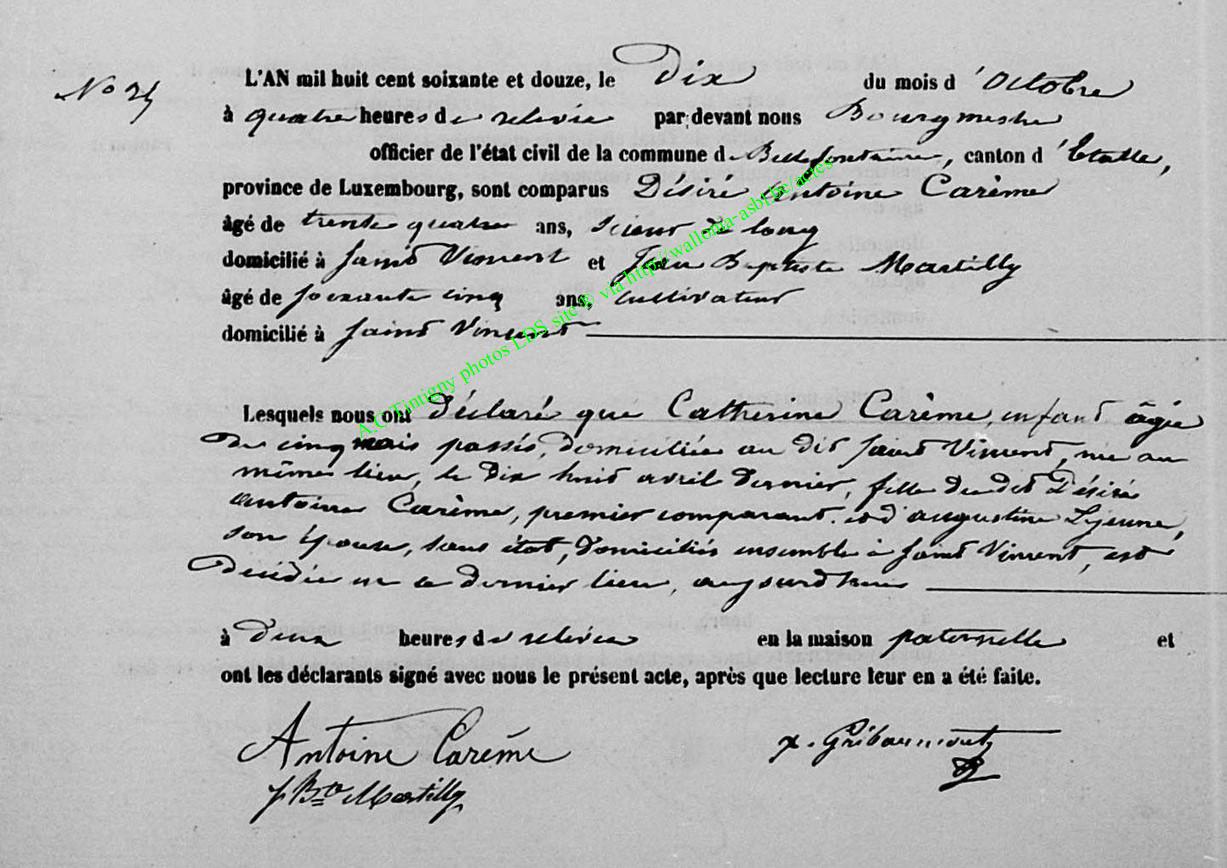 L'AN mil huit cent soixante et douze, le Dix du mois d'Octobre
No 24
à quatre heures de relevée par devant nous Bourgmestre
officier de l'état civil de la commune de Bellefontaine, canton d'Etalle,
province de Luxembourg, sont comparus Désiré Antoine Carème
âgé de trente quatre ans, scieur de long
domicilié à Saint Vincent et Jean Baptiste Martilly
âgé de soixante cinq ans, cultivateur
domicilié à Saint Vincent
Lesquels nous ont Déclaré que Catherine Carème, enfant âgée
De cinq mois passés, Domiciliée au dit Saint Vincent, née au
même lieu, le Dix huit avril Dernier, fille du dit Désiré
Antoine Carème, premier comparant et d'augustine Lejeune,
son épouse, sans état, Domiciliés ensemble à Saint Vincent, est
Décédée en ce dernier lieu, aujourd'hui
à Deux heures de relevée en la maison paternelle et
ont les déclarants signé avec nous le présent acte, après que lecture leur en a été faite.
Antoine Carême
J Bte Martilly
Gribaumont
A.C. Tintigny photos LDS site © via http://wallonia-asbl.be/actes